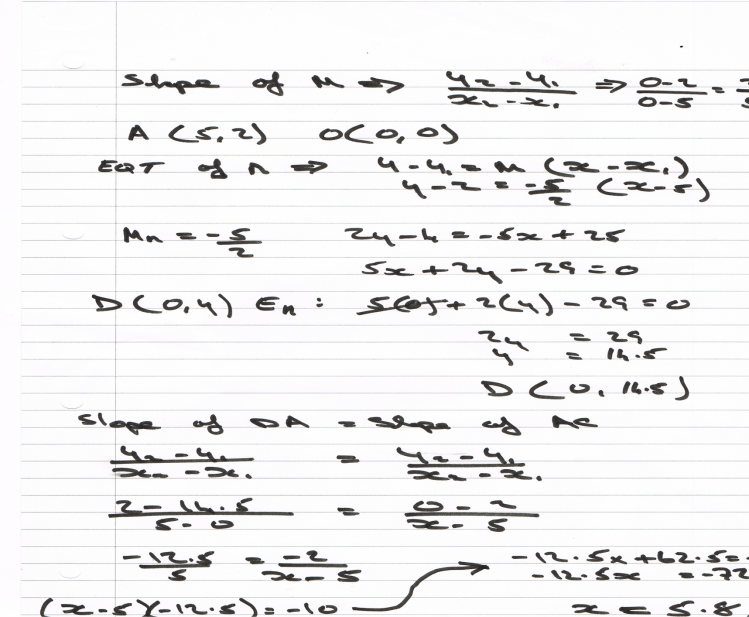 Slope of M ⇒ y₂ - y₁ / x₂ - x₁ ⇒ 0-2 / 0-5 =
A (5,2) O(0,0)
EQT of n ⇒ y - y₁ = M (x - x₁)
y - 2 = -5/2 (x-5)
Mn = -5/2 2y - 4 = -5x + 25
5x + 2y - 29 = 0
D (0,y) En : 5(0) + 2(y) - 29 = 0
2y = 29
y = 14.5
D (0, 14.5)
Slope of DA = Slope of AC
y₂ - y₁ / x₂ - x₁ = y₂ - y₁ / x₂ - x₁
2 - 14.5 / 5 - 0 = 0 - 2 / x - 5
-12.5 / 5 = -2 / x - 5 -12.5x + 62.5 = -
-12.5x = -72
(x-5)(-12.5) = -10 x = 5.8